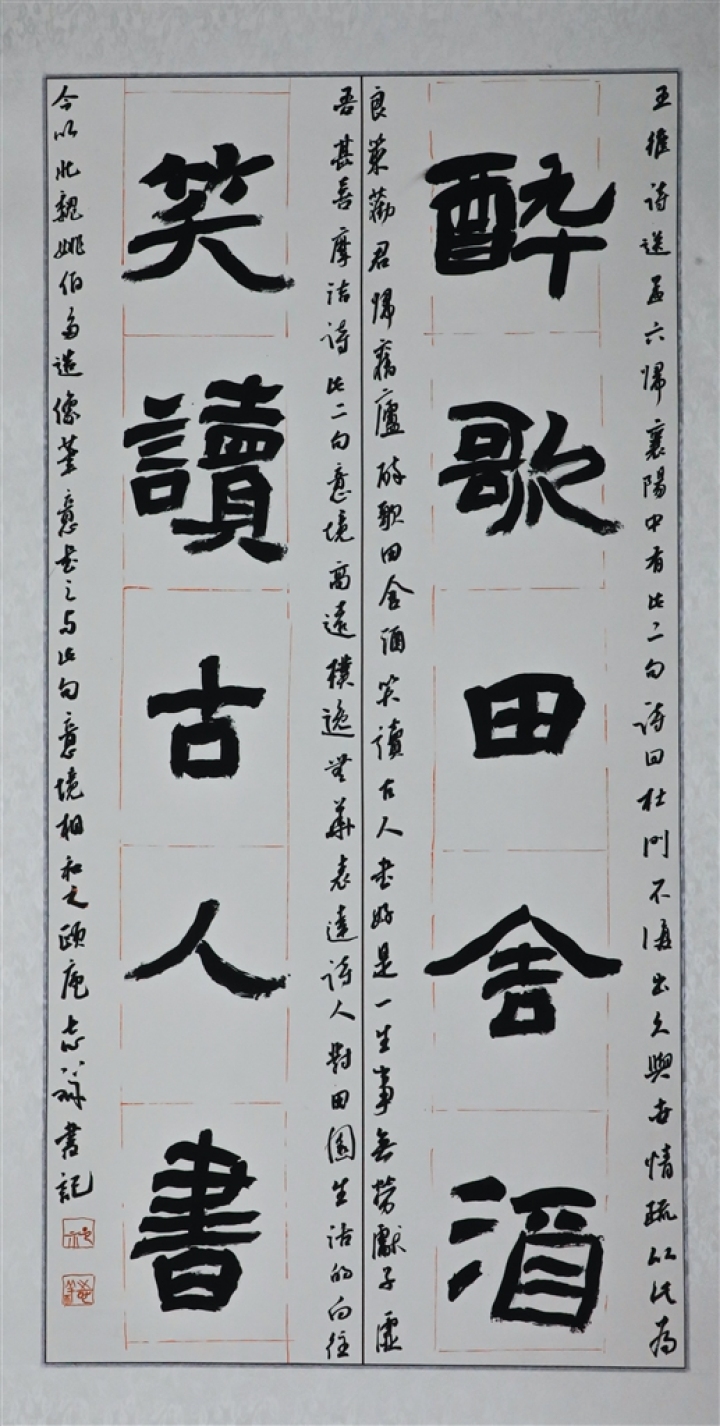 王維詩送孟六歸襄陽中有此二句詩曰杜門不復出久與世情疏以此為
醉歌田舍酒
良策勸君歸舊廬醉歌田舍酒笑讀古人書好是一生事無勞獻子虛
吾甚喜摩詰詩此二句意境高遠樸逸無華表達詩人對田園生活的向往
笑讀古人書
今以北魏姚伯多造像筆意書之与此句意境相和之頤庵志祥書記